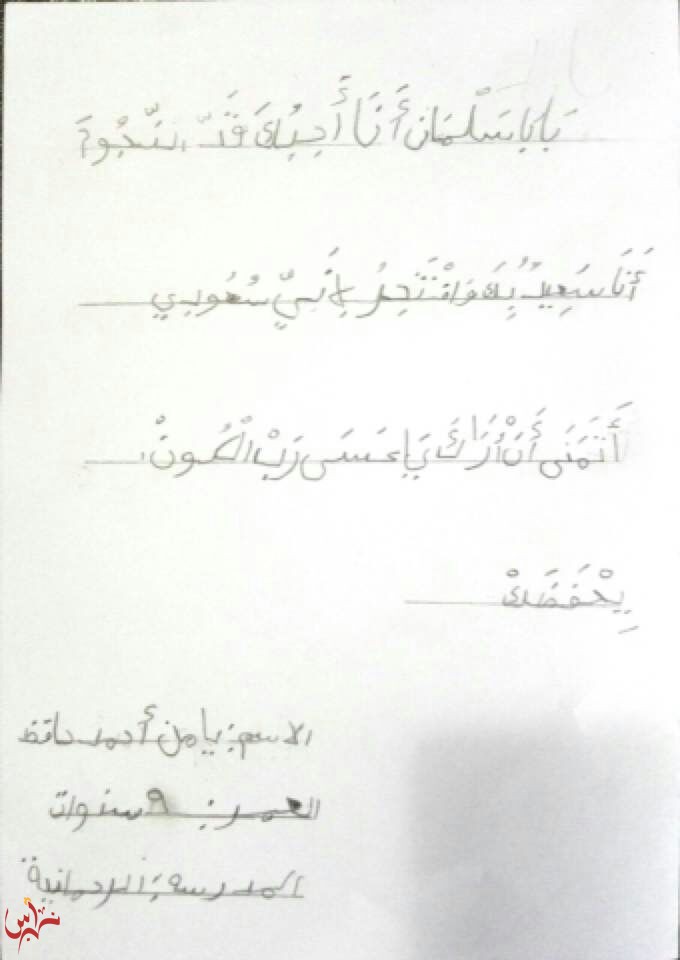 بَابَا سَلْمَان أَنَا أُحِبُّكَ قَدَّ النُّجُومَ
أَنَا سَعِيدٌ بِكَ وَافْتَخِرُ لِأَنَّي سُعُودِي
أَتَمَنَى أَنْ أَرَاكَ يَا عَسَى رَبْ الْكُونْ
يِحْفَضَكْ
الاسم: يامن أحمد حافظ
العمر: ٩ سنوات
المدرسة: الرحمانية
نبراس